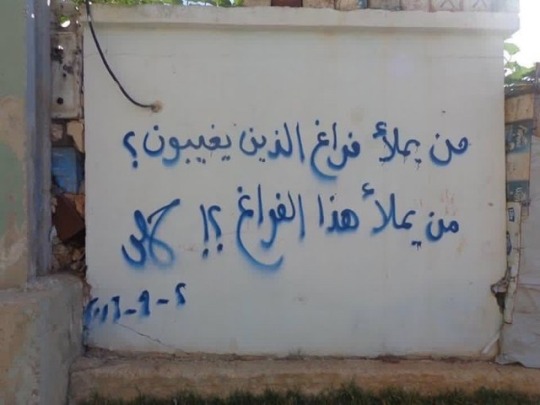 من يملأ فراغ الذين يغيبون؟
من يملأ هذا الفراغ ؟!
٢٠١٦-٩-٢